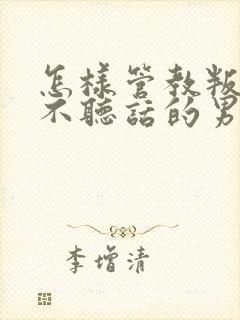 怎样管教叛
不聽話的男
李增清